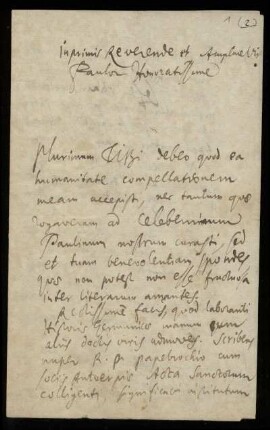 1 (2)
Inprimis Reverende et Ampliss. Vir
Fautor Honoratissime
Plurimum Tibi debeo quod ea
humanitate compellationem
meam accepisti, nec tantum quod
rogaveram ad Celeberrimum
Paullinum nostrum curasti sed
et tuam benevolentiam spondes
quae non potest non esse fructuosa
inter literarum amantes.
Rectissime facis, quod laboranti
Historiis Germanicis manum cum
aliis doctis viris admoves. Scribebat
nuper R. P. Papebrochius cum
sociis Antverpiae Acta Sanctorum
colligens, significans institutum